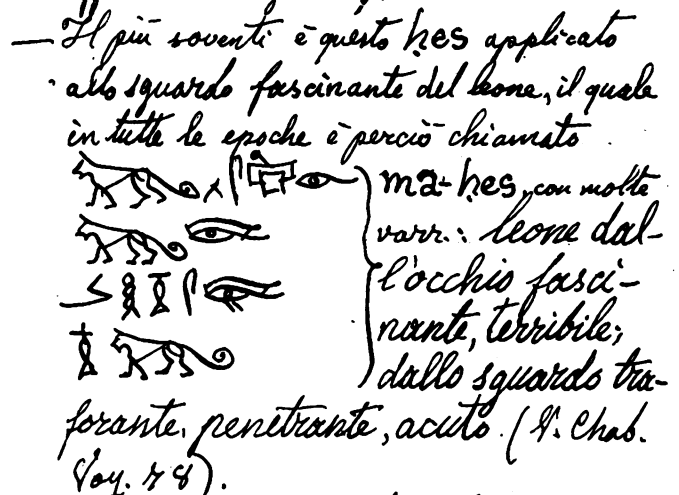 — Il più soventi è questo ḥes applicato
allo sguardo fascinante del leone, il quale
in tutte le epoche è perciò chiamato
ma-ḥes, con molte
varr.: leone dal-
l'occhio fasci-
nante, terribile;
dallo sguardo tra-
forante, penetrante, acuto. (V. Chab.
Voy. 78).